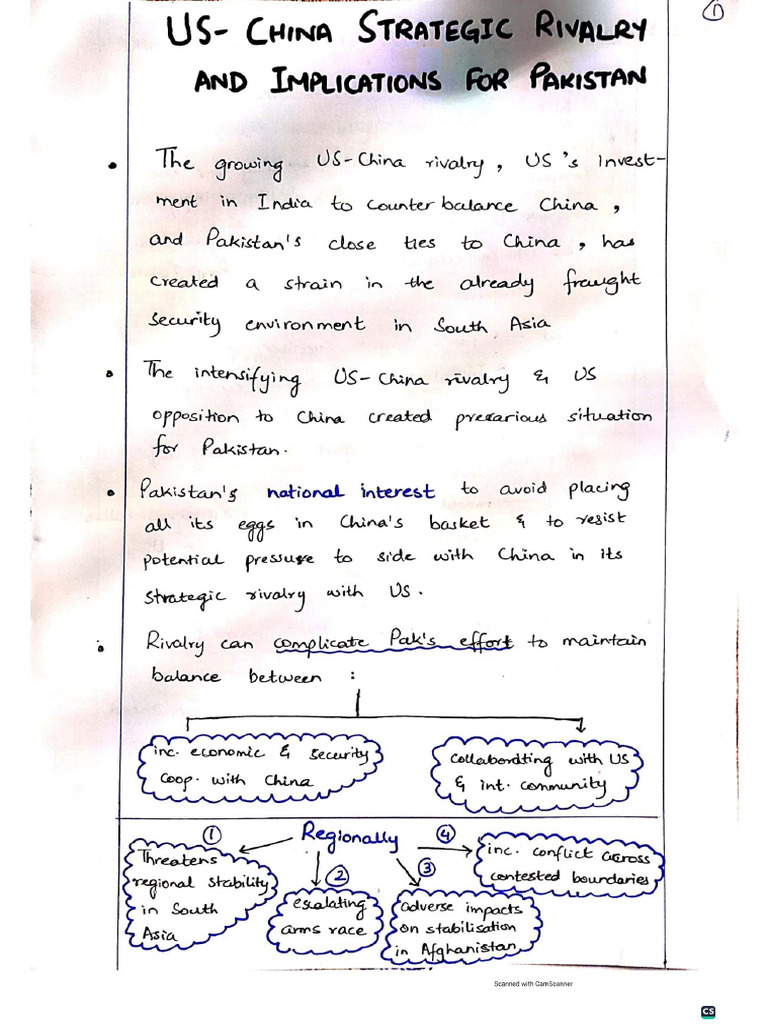 1
US- CHINA STRATEGIC RIVALRY
AND IMPLICATIONS FOR PAKISTAN
• The growing US-China rivalry, US's invest-
ment in India to counter balance China,
and Pakistan's close ties to China, has
created a strain in the already fraught
security environment in South Asia
• The intensifying US-China rivalry & US
opposition to China created precarious situation
for Pakistan.
• Pakistan's national interest to avoid placing
all its eggs in China's basket & to resist
potential pressure to side with China in its
strategic rivalry with US.
• Rivalry can complicate Pak's effort to maintain
balance between :
inc. economic & security
coop. with China
collaborating with US
& int. community
Regionally
1
Threatens
regional stability
in South
Asia
2
escalating
arms race
3
adverse impacts
on stabilisation
in Afghanistan
4
inc. conflict across
contested boundaries
Scanned with CamScanner
CS